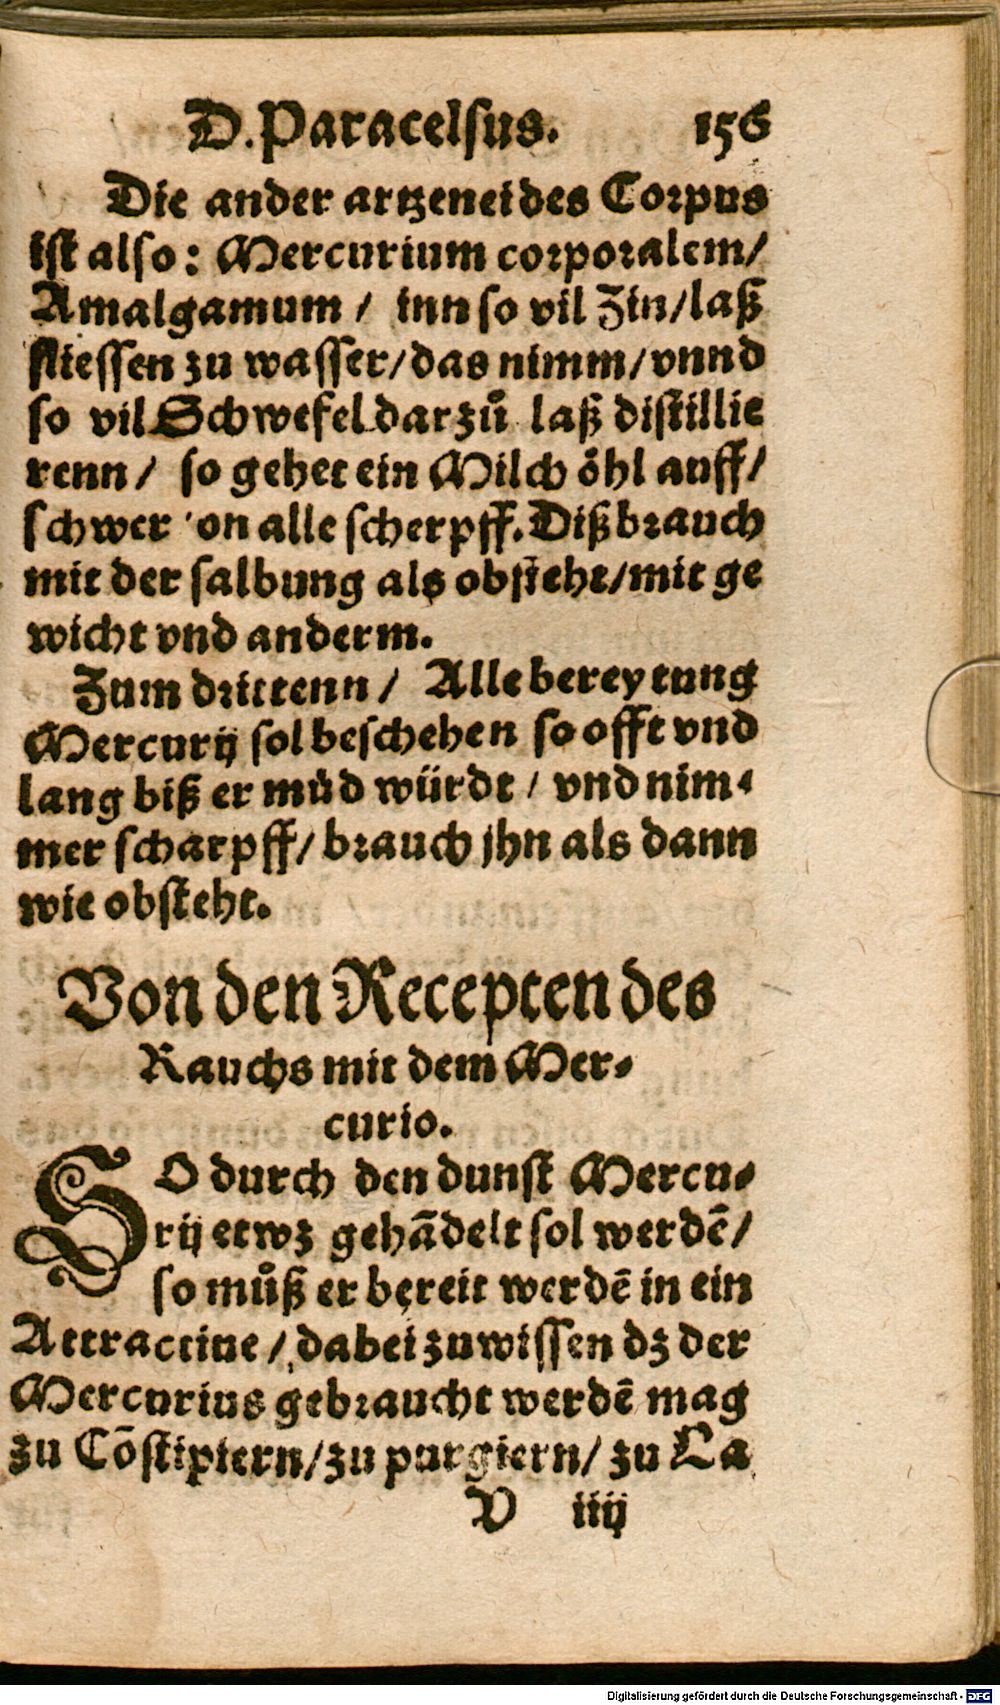 D. Paracelsus. 156
Die ander artzenei des Corpus
ist also: Mercurium corporalem/
Amalgamum / inn so vil Zin/laß
fliessen zu wasser/das nimm/vnnd
so vil Schwefel darzů laß distillie
renn/ so gehet ein Milch öhl auff/
schwer on alle scherpff. Diß brauch
mit der salbung als obsteht/mit ge
wicht vnd anderm.
Zum drittenn/ Alle bereytung
Mercurij sol beschehen so offt vnd
lang biß er müd würdt / vnd nim-
mer scharpff/ brauch jhn als dann
wie obsteht.
Von den Recepten des
Rauchs mit dem Mer-
curio.
SO durch den dunst Mercu-
rij etwz gehãdelt sol werdẽ/
so můß er bereit werdẽ in ein
Attractiue/ dabei zuwissen dz der
Mercurius gebraucht werdẽ mag
zu Cõstipiern/zu purgiern/ zu La
V iiij
Digitalisierung gefördert durch die Deutsche Forschungsgemeinschaft - DFG